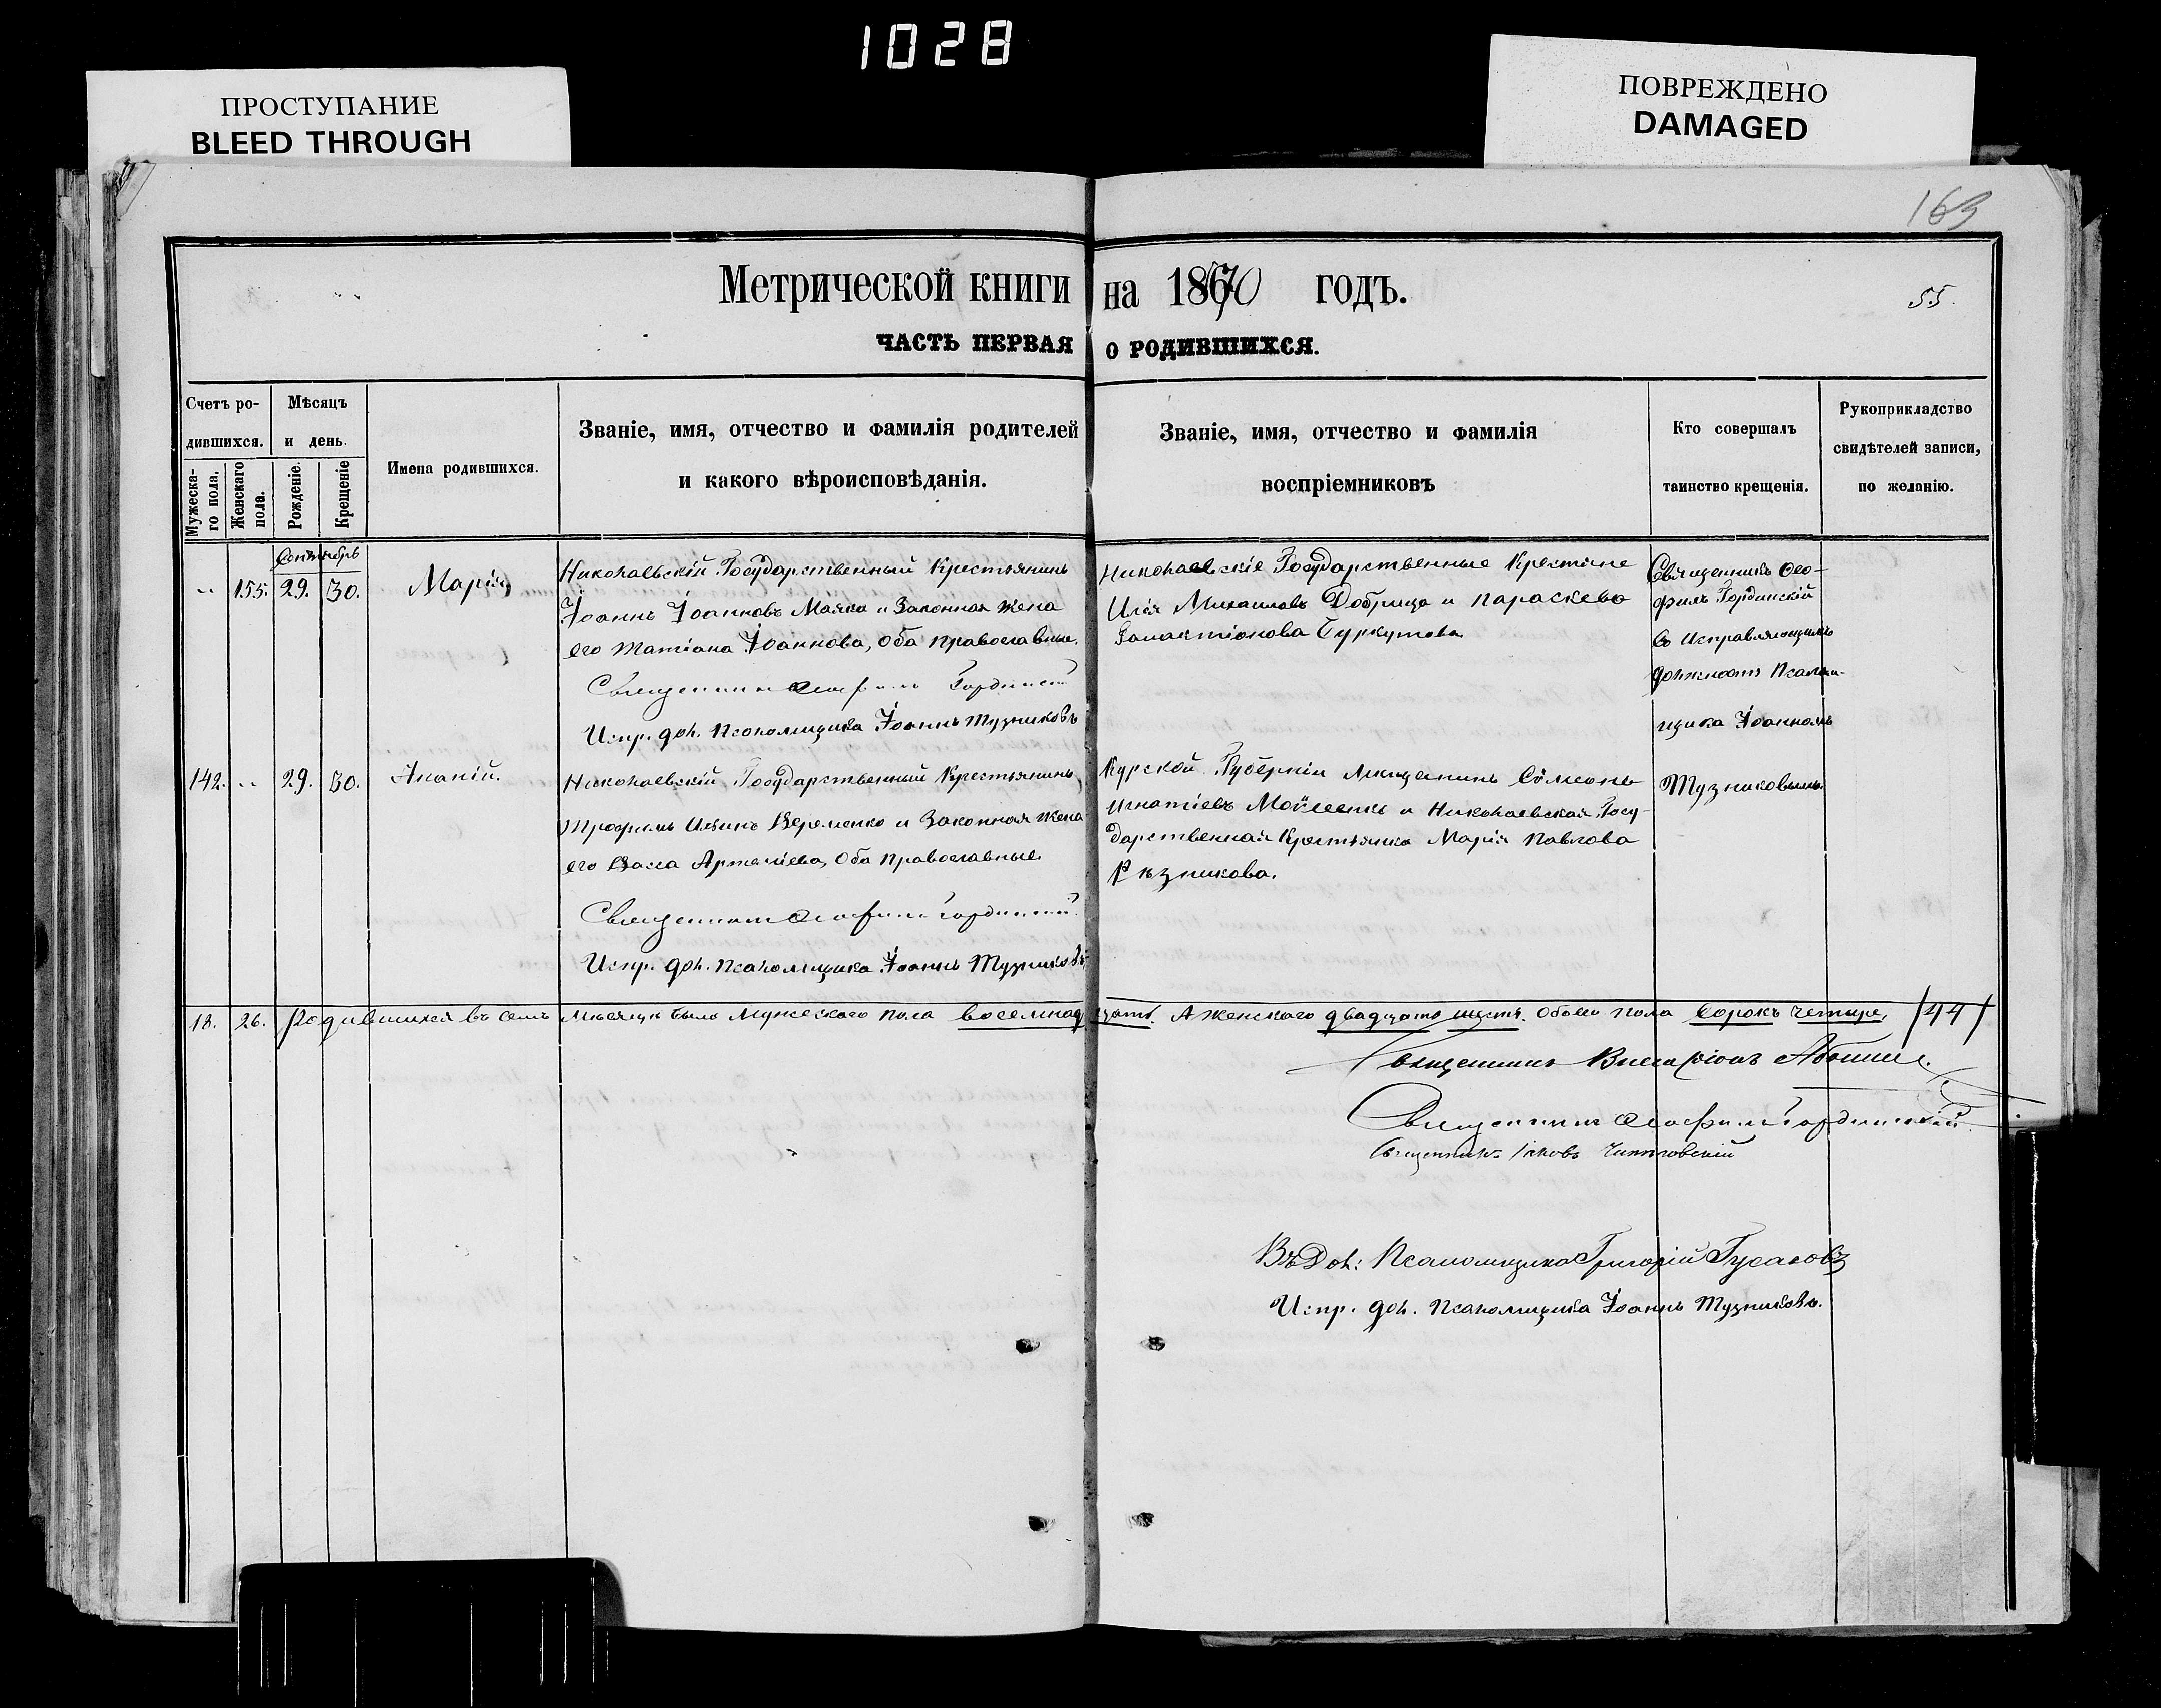 1028
ПРОСТУПАНИЕ
BLEED THROUGH
ПОВРЕЖДЕНО
DAMAGED
163
Метрической книги на 1870 годъ.
55.
ЧАСТЬ ПЕРВАЯ О РОДИВШИХСЯ.
Счетъ ро-
дившихся.
Мужеска-
го пола.
Женскаго
пола.
Мѣсяцъ
и день.
Рожденіе.
Крещеніе
Имена родившихся.
Званіе, имя, отчество и фамилія родителей
и какого вѣроисповѣданія.
Званіе, имя, отчество и фамилія
воспріемниковъ
Кто совершалъ
таинство крещенія.
Рукоприкладство
свидѣтелей записи,
по желанію.
Сентябрь
" 155. 29. 30. Марія
Николаевскій Государственный Крестьянинъ
Іоаннъ Іоанновъ Маяка и Законная жена
его Татіана Іоаннова, оба православные.
Священникъ Ѳеофилъ Гординскій
Испр. дол. Псаломщика Іоаннъ Тузниковъ
Николаевскіе Государственные Крестяне
Илія Михаиловъ Добрица и Параскева
Галактіонова Буркутова
Священникъ Ѳео-
филъ Гординскій
съ Исправляющимъ
должность Псалом-
щика Іоанномъ
Тузниковымъ.
142. " 29. 30. Ананій.
Николаевскій Государственный Крестьянинъ
Трофимъ Ильинъ Веременко и Законная жена
его Васса Артеміева, Оба православные.
Священникъ Ѳеофилъ Гординскій
Испр. дол. Псаломщика Іоаннъ Тузниковъ
Курской Губерніи Мещанинъ Сѵмеонъ
Игнатіевъ Моисеенко и Николаевская Госу-
дарственная Крестьянка Марія Павлова
Рѣзникова.
18. 26. Родившихся въ семъ Мѣсяцѣ было Мужескаго пола восемнадцать. А женскаго двадцать шесть. Обоего пола Сорокъ Четыре, /44/
Священникъ Виссаріонъ
Священникъ Ѳеофилъ Гординскій
Священникъ Іаковъ
Въ Дол: Псаломщика Григорій Гусаковъ
Испр. дол. Псаломщика Іоаннъ Тузниковъ.